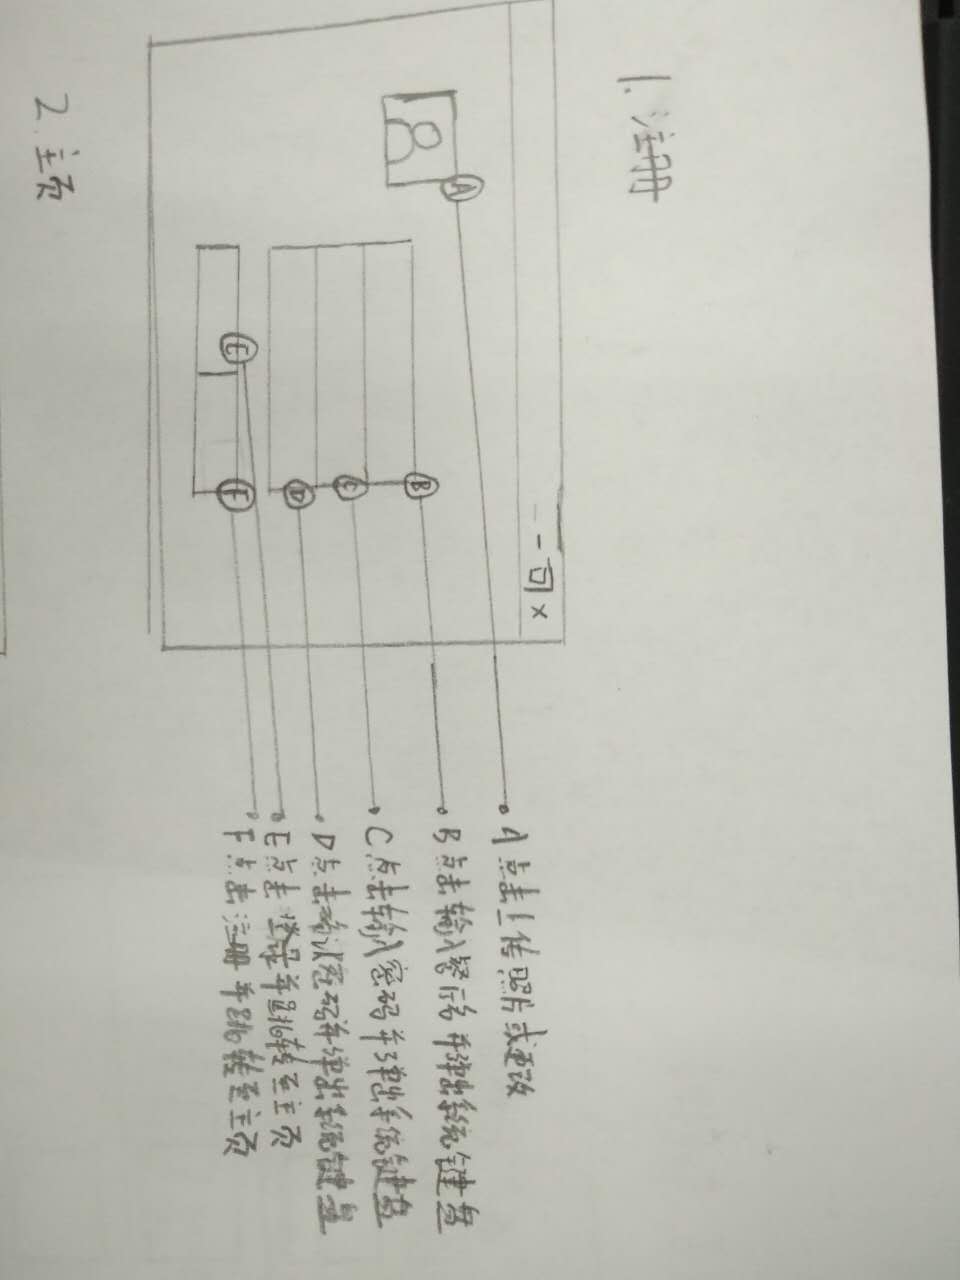 1. 注册
- 回 ×
A
B
C
D
E
F
A 点击上传照片或更改
B 点击输入 并弹出系统键盘
C 点击输入密码并弹出系统键盘
D 点击确认密码并弹出系统键盘
E 点击登录并跳转至主页
F 点击注册并跳转至主页
2. 主页